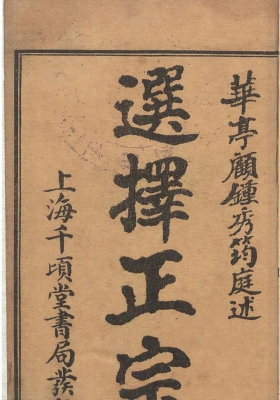 華亭顧鍾秀筠庭述
選擇正宗
上海千頃堂書局發